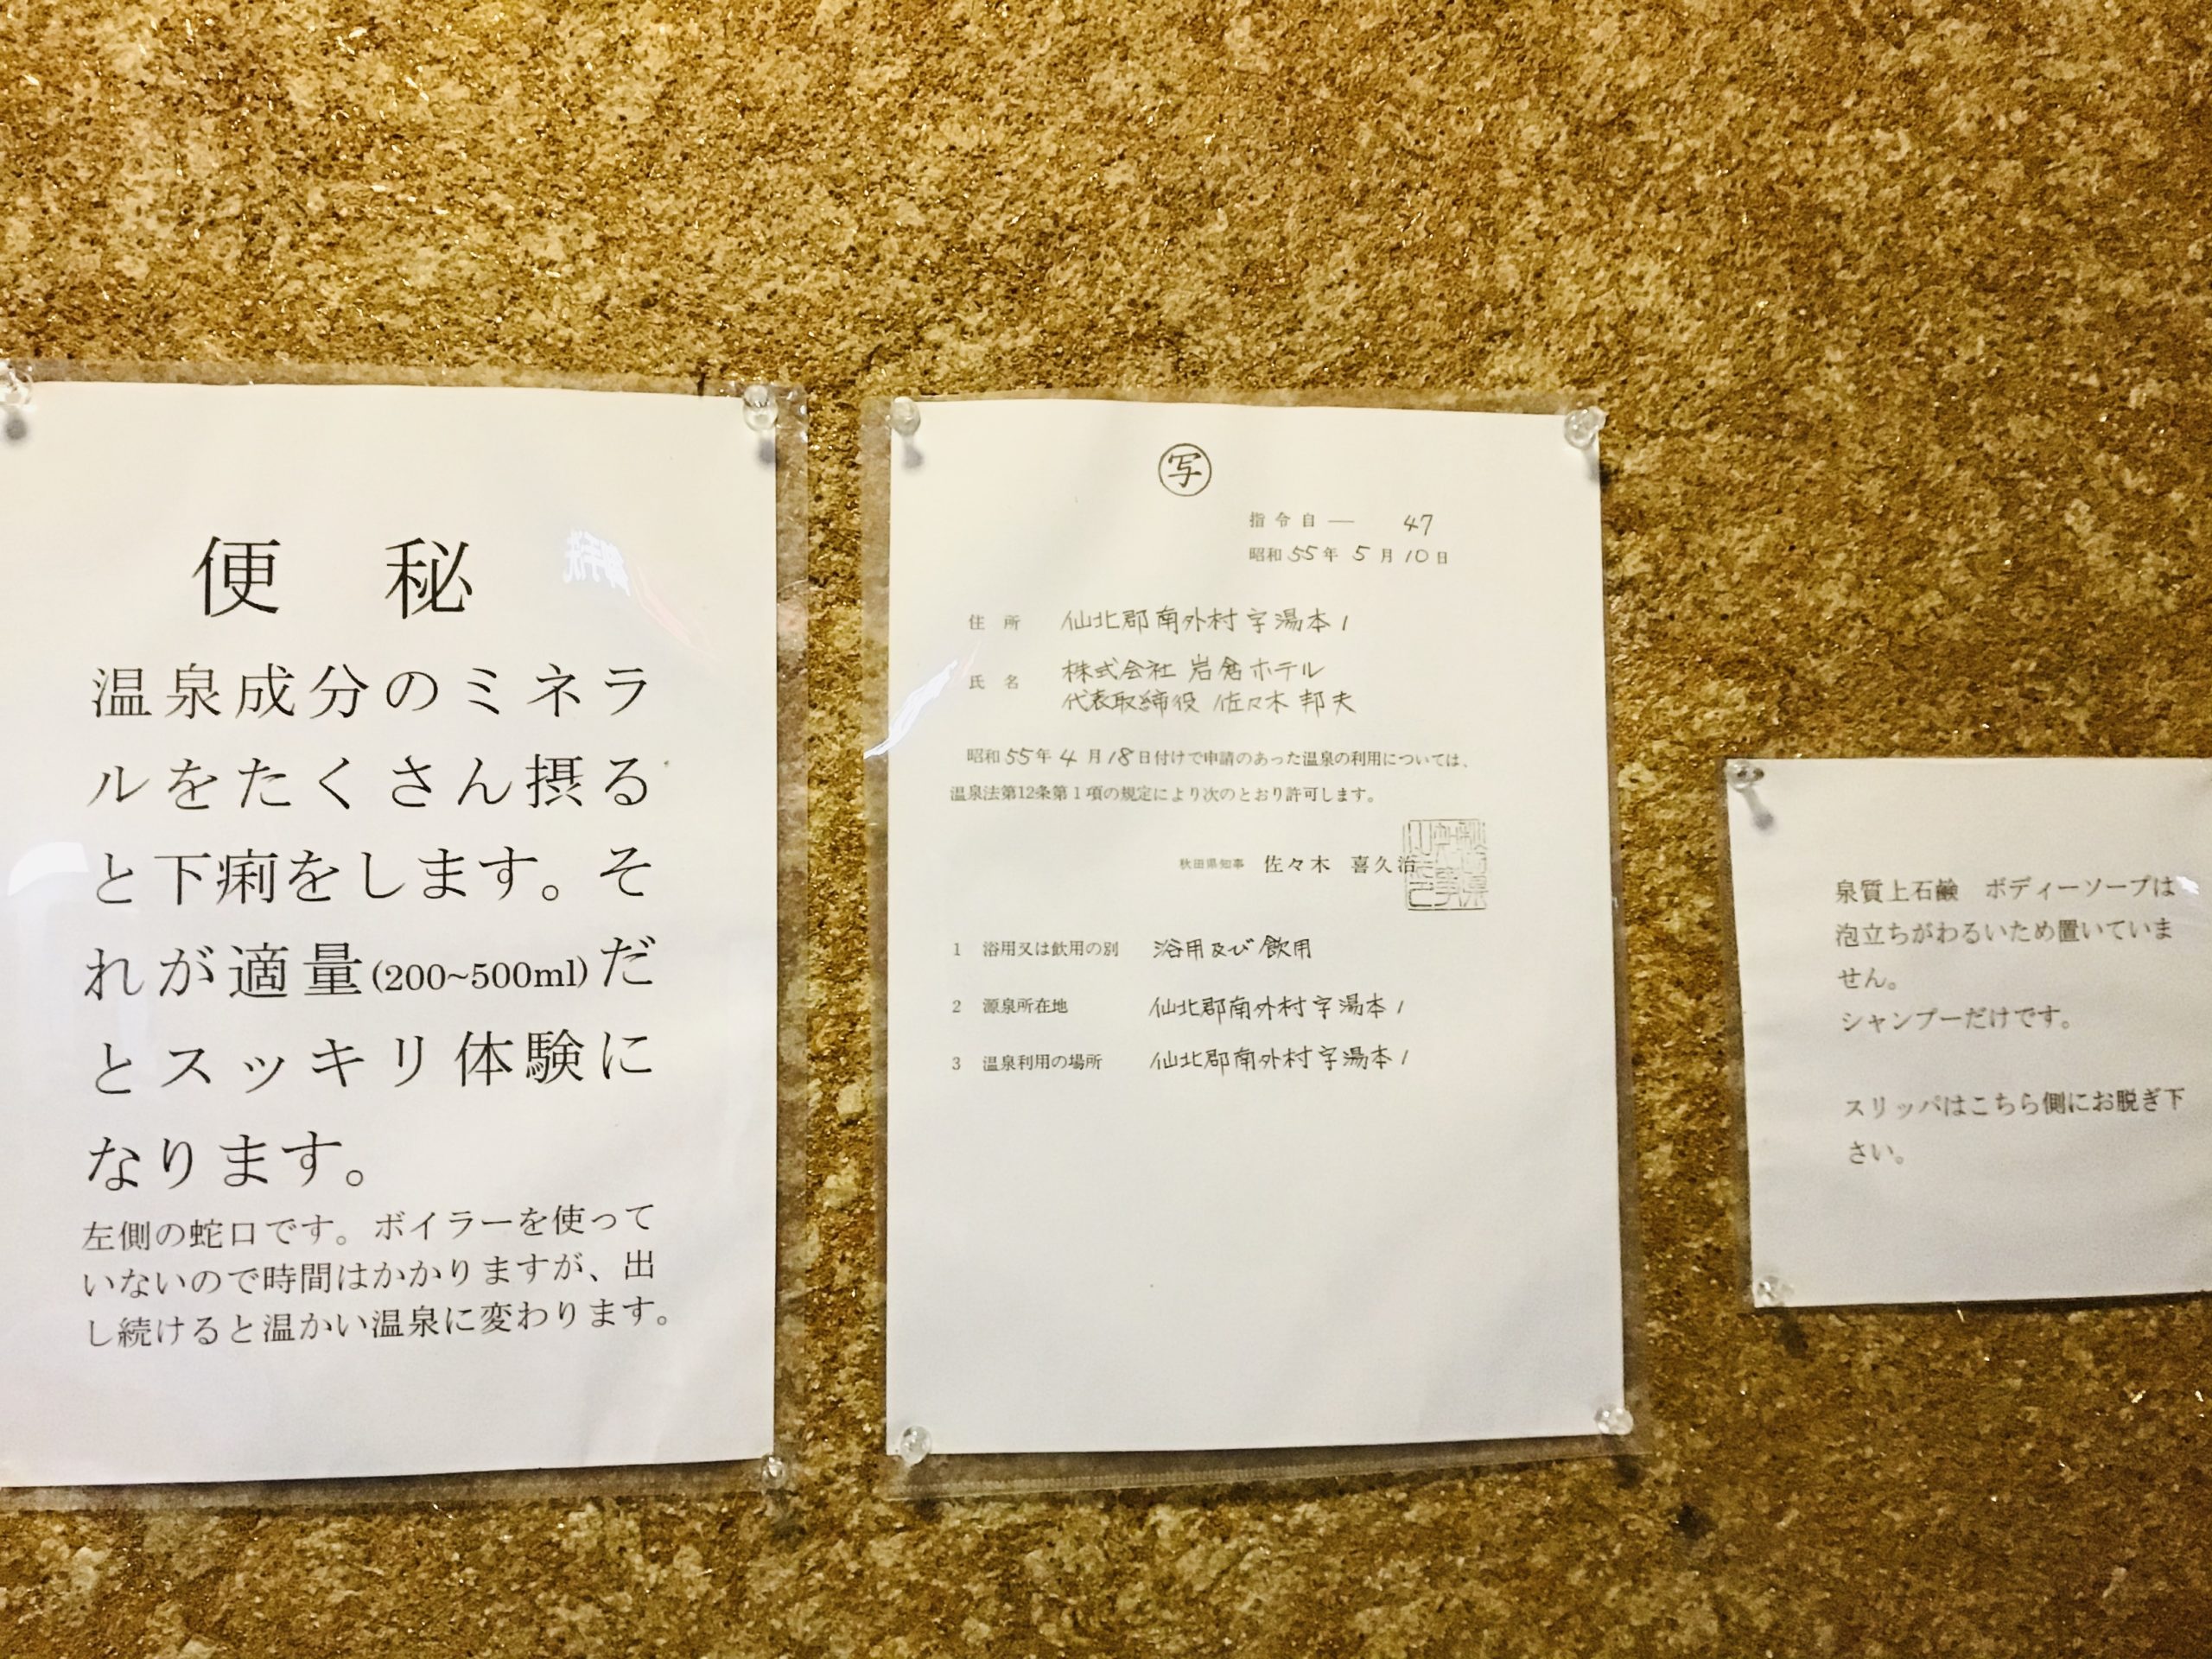 便 秘
温泉成分のミネラ
ルをたくさん摂る
と下痢をします。そ
れが適量(200~500ml)だ
とスッキリ体験に
なります。
左側の蛇口です。ボイラーを使って
いないので時間はかかりますが、出
し続けると温かい温泉に変わります。
写
指令自― 47
昭和55年 5月10日
住所 仙北郡南外村字湯本1
氏名 株式会社 岩倉ホテル
代表取締役 佐々木 邦夫
昭和55年 4月18日付けで申請のあった温泉の利用については、
温泉法第12条第1項の規定により次のとおり許可します。
秋田県知事 佐々木 喜久治
1 浴用又は飲用の別 浴用及び飲用
2 源泉所在地 仙北郡南外村字湯本1
3 温泉利用の場所 仙北郡南外村字湯本1
泉質上石鹸 ボディーソープは
泡立ちがわるいため置いていま
せん。
シャンプーだけです。
スリッパはこちら側にお脱ぎ下
さい。